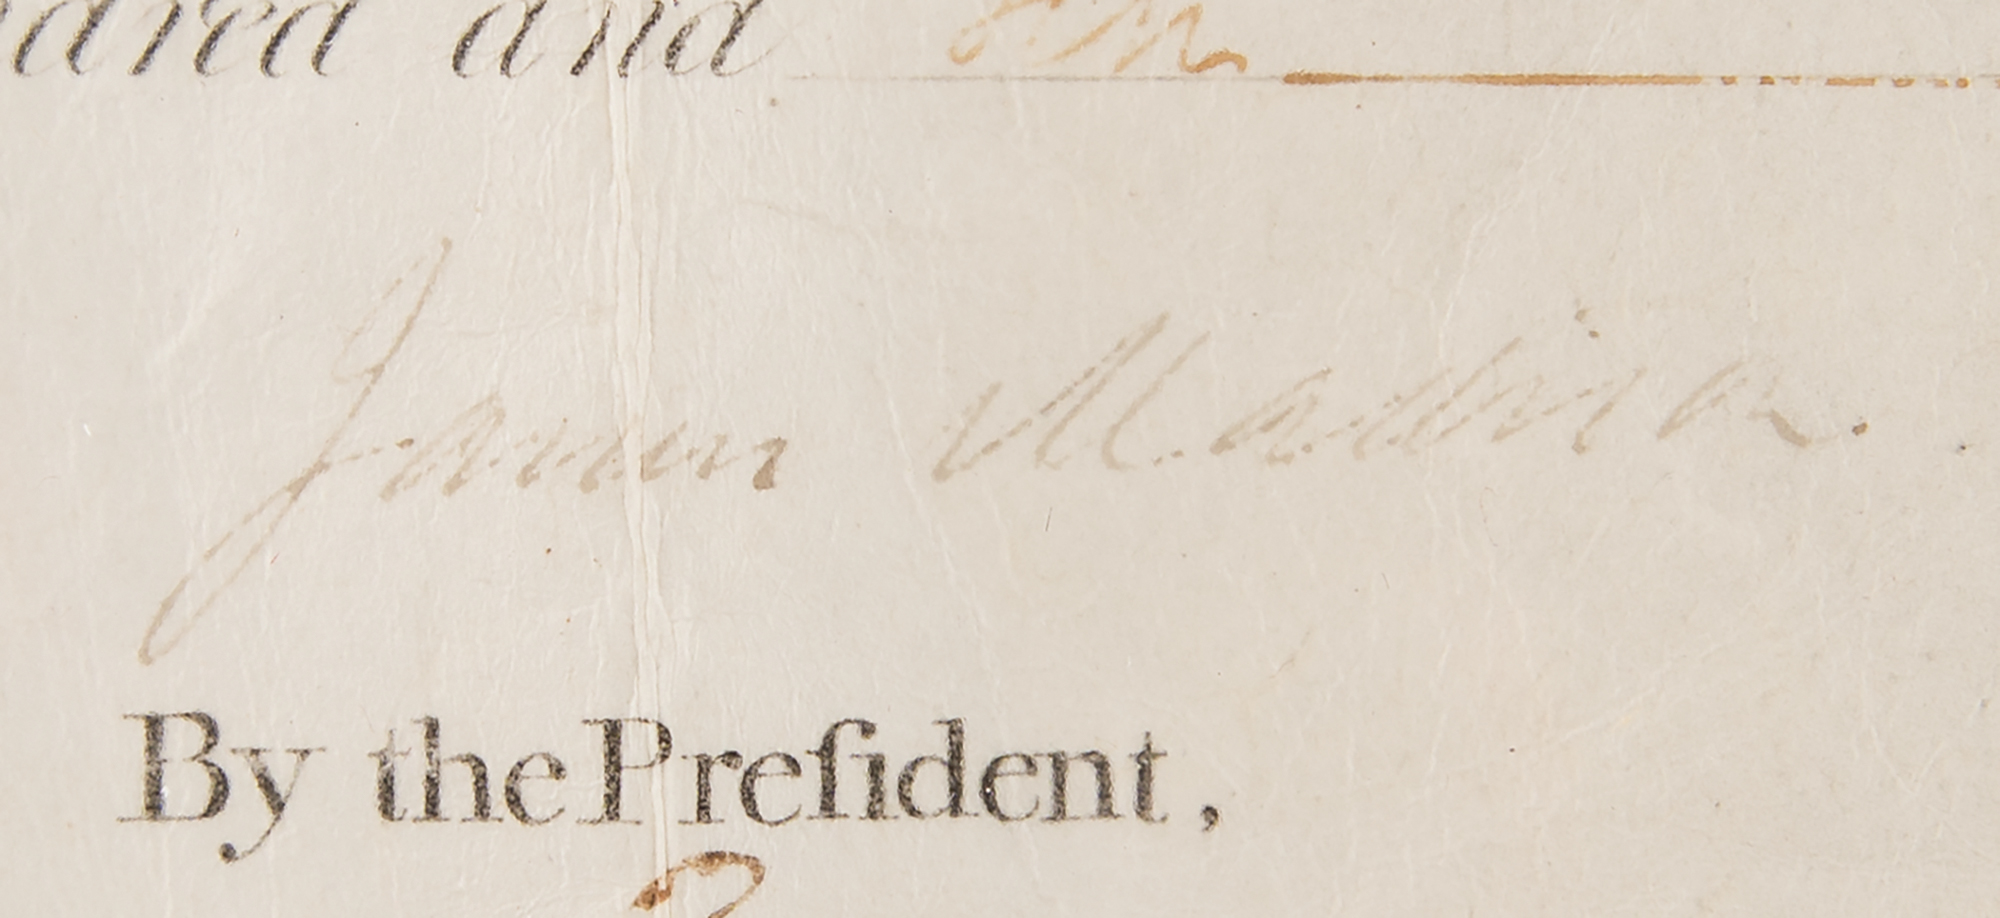 dred and ten
James Madison.
By the Preſident,